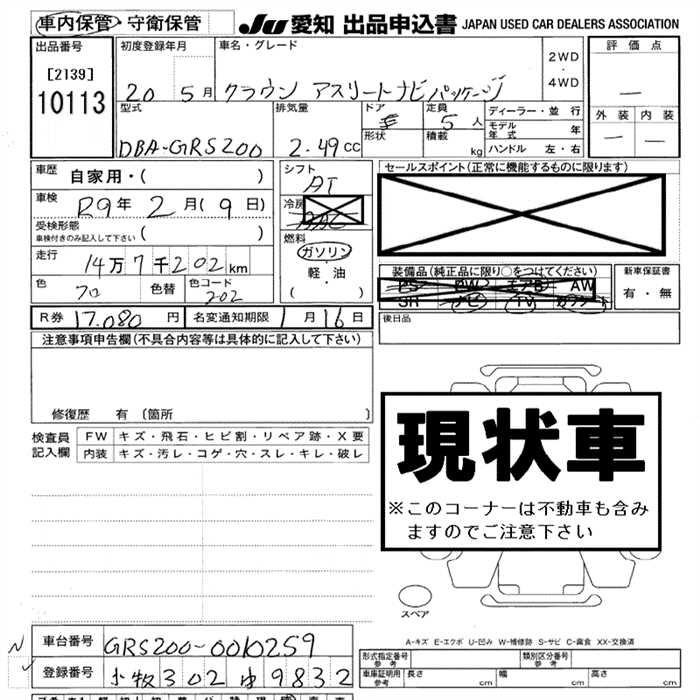 車内保管・守衛保管
JU 愛知 出品申込書 JAPAN USED CAR DEALERS ASSOCIATION
出品番号
[2139]
10113
初度登録年月
20 5月
車名・グレード
クラウン アスリートナビパッケージ
2WD
・
4WD
評価点
—
外装 内装
— —
型式
DBA-GRS200
排気量
2.49cc
ドア
形状
定員
5人
積載 kg
ディーラー・並行
モデル年式 年
ハンドル 左・右
車歴
自家用・( )
車検
R9年2月(9日)
受検形態
車検付きのみ記入して下さい ( )
走行
14万7千202km
色
クロ
色替
色コード
202
シフト
AT
冷房
燃料
ガソリン
・
軽・油
( )
セールスポイント(正常に機能するものに限ります)
装備品(純正品に限り○をつけてください)
PS PW エアB AW
SR ナビ TV カワシート
新車保証書
有・無
R券 17.080円
名変通知期限 1月16日
後日品
注意事項申告欄(不具合内容等は具体的に記入して下さい)
修復歴 有 〔箇所 〕
検査員
記入欄
FW キズ・飛石・ヒビ割・リペア跡・X要
内装 キズ・汚レ・コゲ・穴・スレ・キレ・破レ
現状車
※このコーナーは不動車も含み
ますのでご注意下さい
スペア
A-キズ E-エクボ U-凹み W-補修跡 S-サビ C-腐食 XX-交換済
車台番号 GRS200-0010259
登録番号 小牧302ゆ9832
形式指定番号
参考
類別区分番号
参考
車庫証明用
参考
長さ cm
幅 cm
高さ cm